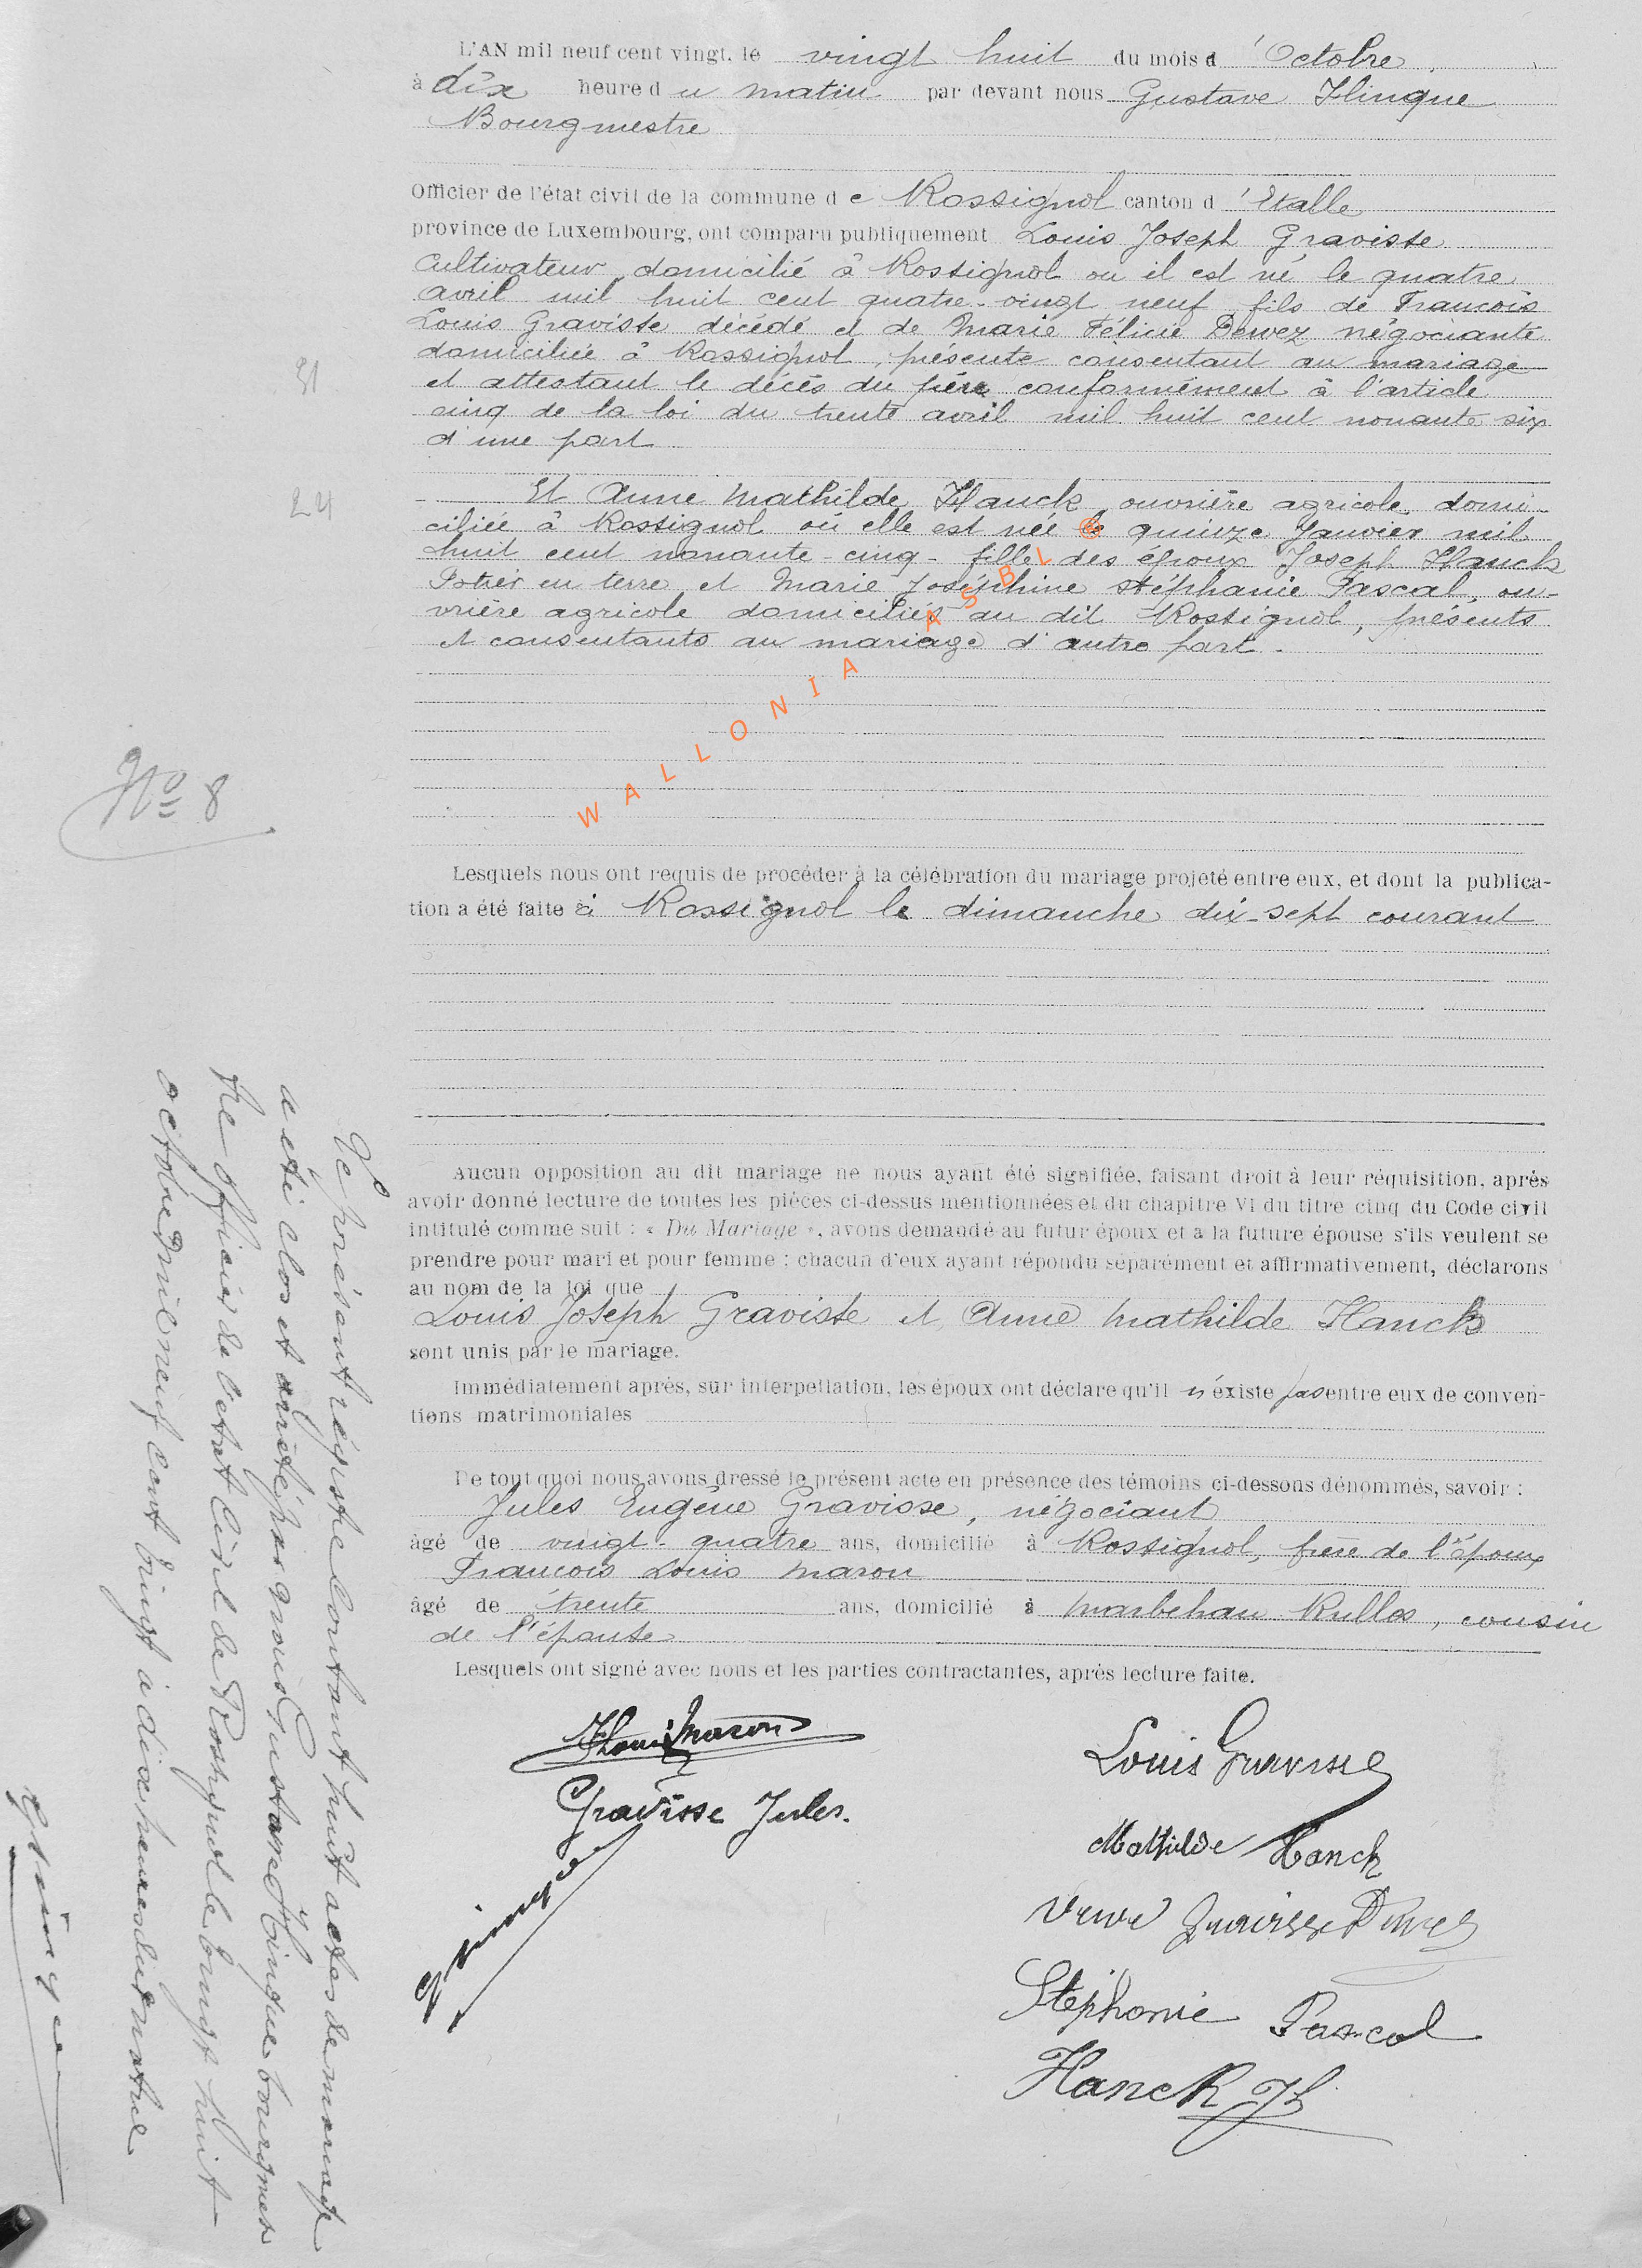 L'AN mil neuf cent vingt, le vingt huit du mois d'Octobre
à dix heure du matin par devant nous Gustave Hinque
Bourgmestre
Officier de l'état civil de la commune de Rossignol canton d'Etalle
province de Luxembourg, ont comparu publiquement Louis Joseph Gravisse
Cultivateur domicilié à Rossignol ou il est né le quatre
avril mil huit cent quatre-vingt neuf fils de Francois
Louis Gravisse décédé et de Marie Félicie Dewez négociante
domiciliée à Rossignol, présente consentant au mariage
et attestant le décès du père conformément à l'article
cinq de la loi du trente avril mil huit cent nonante six
d'une part
31
24
Et Anne Mathilde Hanck ouvrière agricole domi-
ciliée à Rossignol où elle est née le quinze Janvier mil
huit cent nonante-cinq- fille des époux Joseph Hanck
Potier en terre et Marie Joséphine Stéphanie Pascal, ou-
vrière agricole domiciliés au dit Rossignol, présents
et consentants au mariage d'autre part.
WALLONIA ASBL ®
No 8
Lesquels nous ont requis de procéder à la célébration du mariage projeté entre eux, et dont la publica-
tion a été faite à Rossignol le dimanche dix-sept courant
Aucun opposition au dit mariage ne nous ayant été signifiée, faisant droit à leur réquisition, après
avoir donné lecture de toutes les pièces ci-dessus mentionnées et du chapitre VI du titre cinq du Code civil
intitulé comme suit : « Du Mariage », avons demandé au futur époux et a la future épouse s'ils veulent se
prendre pour mari et pour femme : chacun d'eux ayant répondu séparément et affirmativement, déclarons
au nom de la loi que
Louis Joseph Gravisse et Anne Mathilde Hanck
sont unis par le mariage.
Immédiatement après, sur interpellation, les époux ont déclare qu'il n'existe pas entre eux de conven-
tions matrimoniales
De tout quoi nous avons dressé le présent acte en présence des témoins ci-dessons dénommés, savoir :
Jules Eugène Gravisse, négociant
âgé de vingt-quatre ans, domicilié à Rossignol, frère de l'époux
Francois Louis Mason
âgé de trente ans, domicilié à Marbehan Rulles, cousin
de l'épouse
Lesquels ont signé avec nous et les parties contractantes, après lecture faite.
Louis Gravisse
Gravisse Jules.
Mathilde Hanck
Veuve Gravisse Dewez
Stéphanie Pascal
Hanck Jh
G Hinque
Le présent registre contenant huit actes de mariage
a été clos et arrêté par nous Gustave Hinque bourgmes
tre officier de l'etat civil de Rossignol le vingt huit
octobre mil neuf cent vingt à dix heures du matin
G Hinque